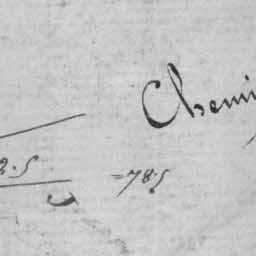 Chemi
2.5
=78.5